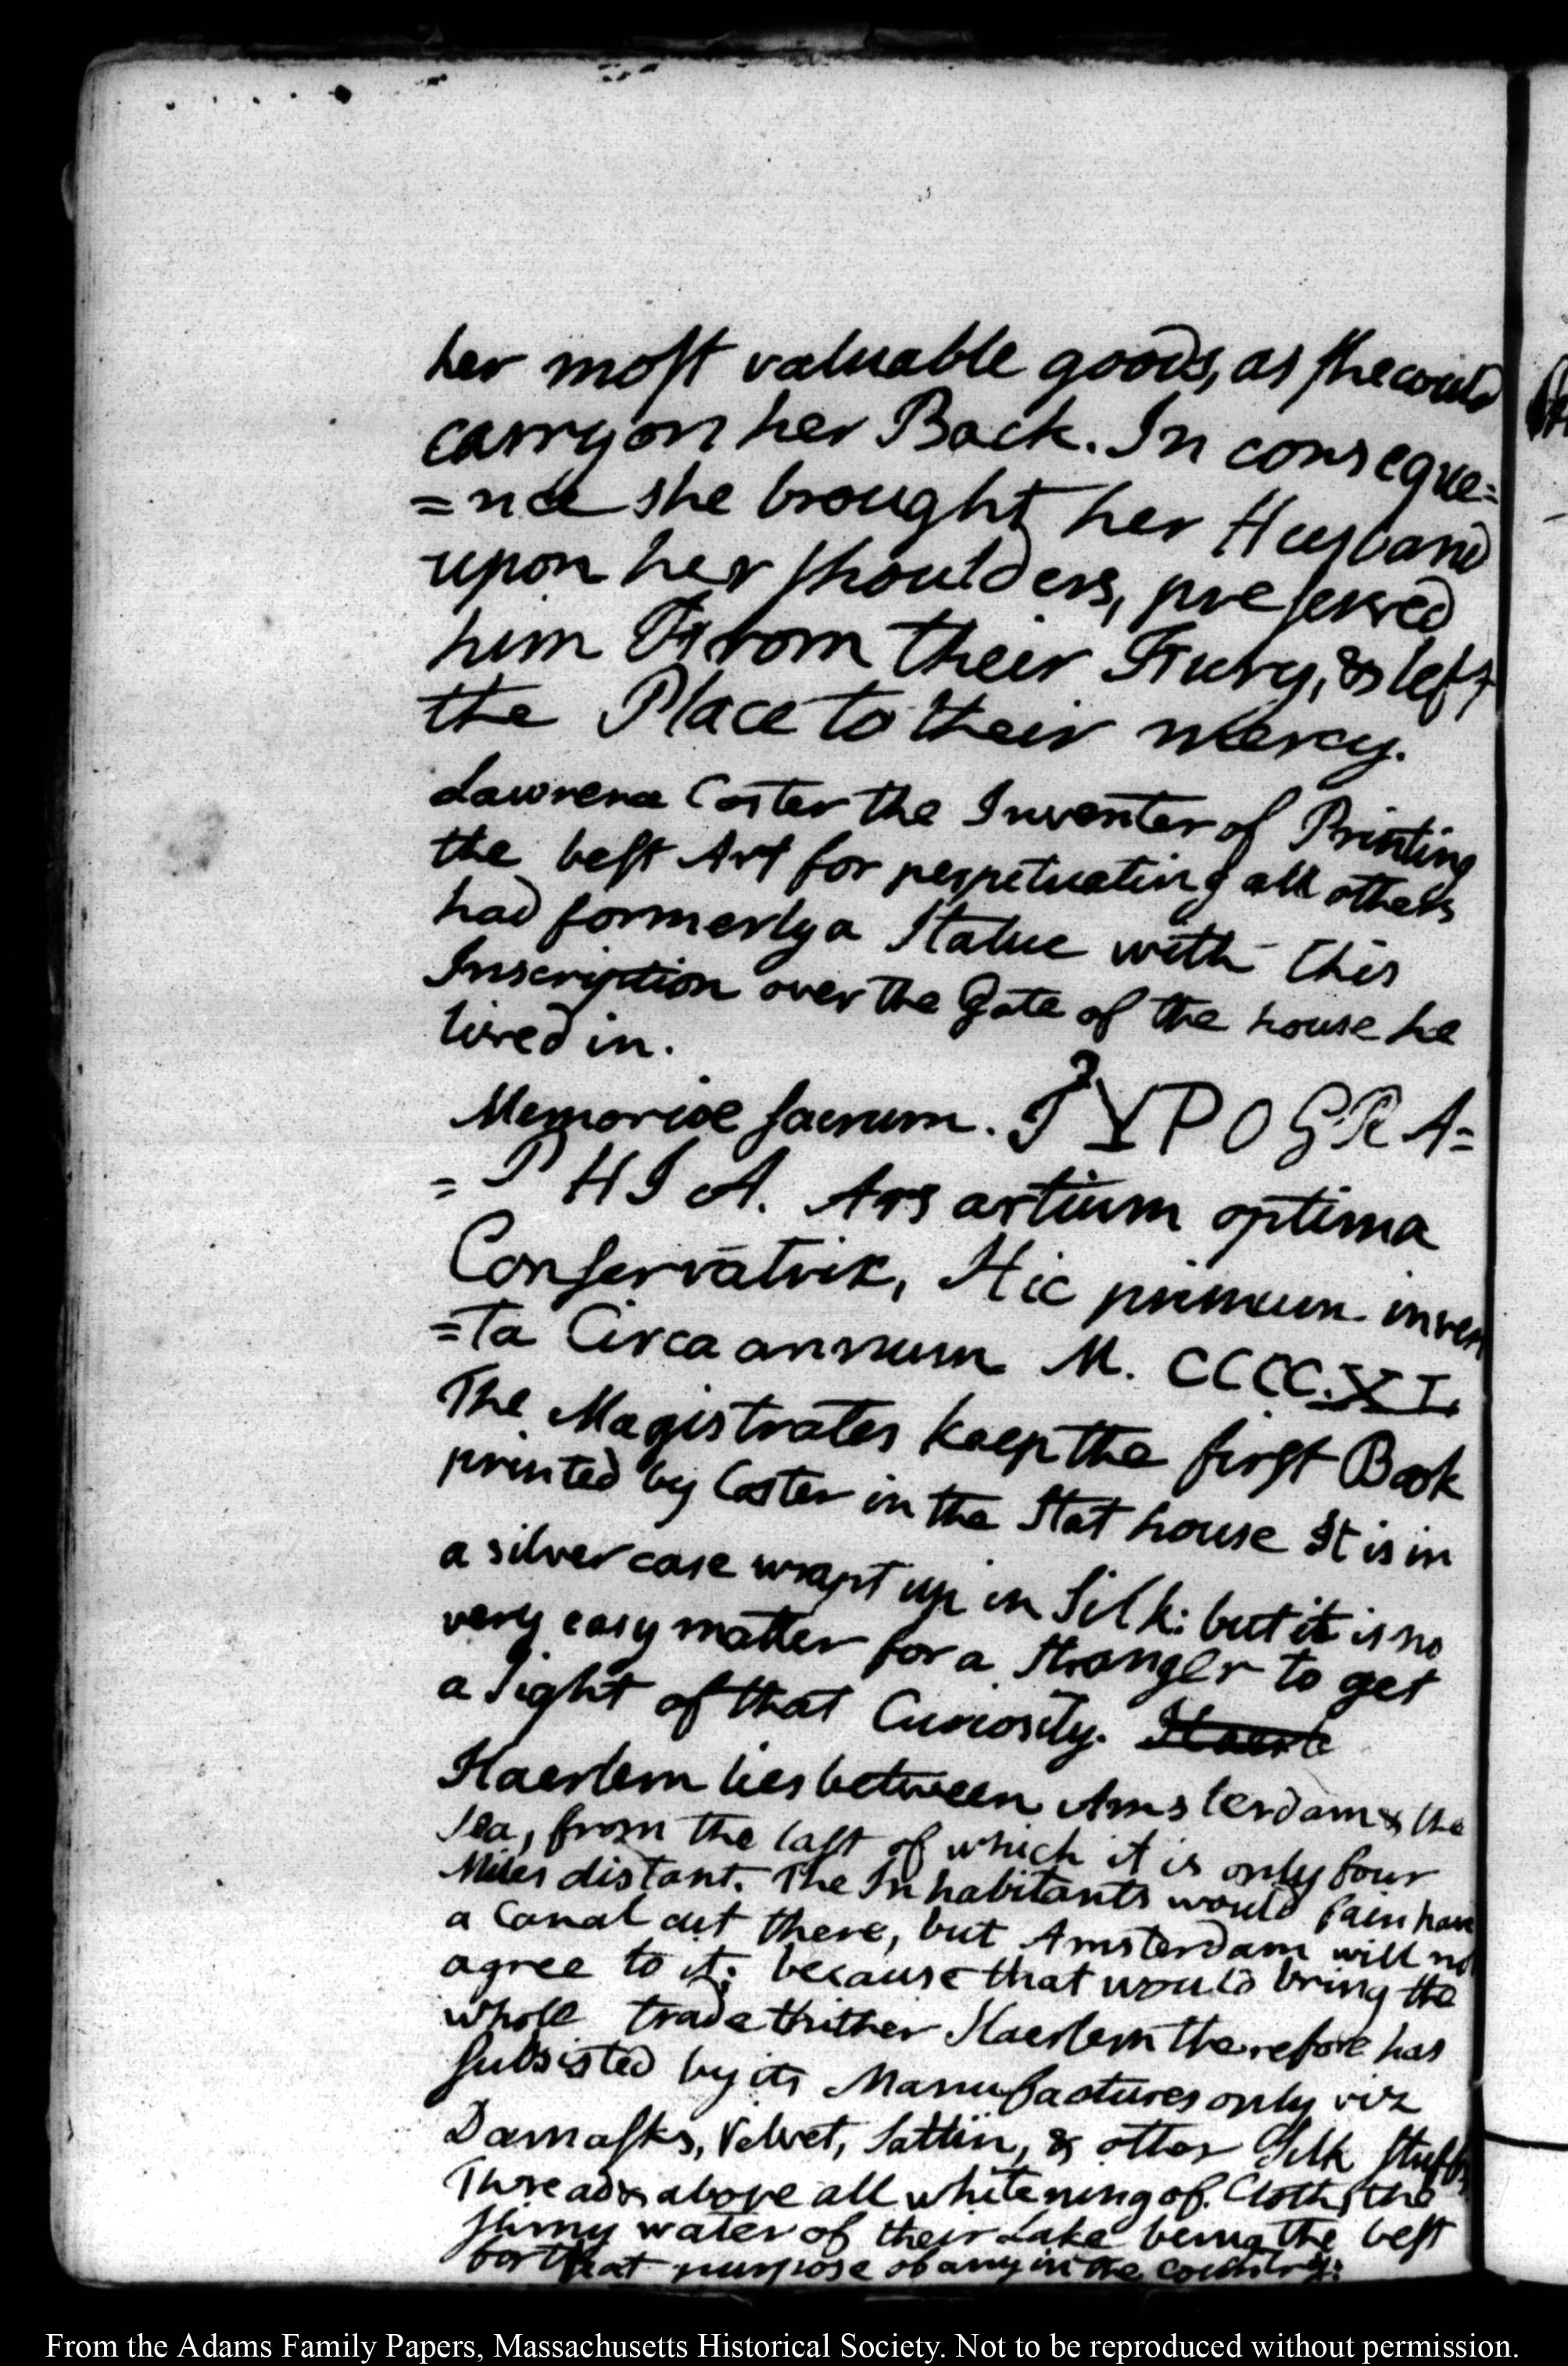 her most valuable goods, as she could
carry on her Back. In conseque=
=nce she brought her Husband
upon her shoulders, preserved
him From their Fury, & left
the Place to their mercy.
Lawrence Coster the Inventer of Printing
the best Art for perpetuating all others
had formerly a Statue with this
Inscription over the Gate of the house he
lived in.
Memoriae sacrum. TYPOGRA=
=PHIA. Ars artium optima
Conservatrix, Hic primum inven
=ta Circa annum M. CCCC.XL.
The Magistrates keep the first Book
printed by Coster in the Stat house It is in
a silver case wrapt up in Silk: but it is no
very easy matter for a Stranger to get
a Sight of that Curiosity. Haerle
Haerlem lies between Amsterdam & the
Sea, from the last of which it is only four
Miles distant. The Inhabitants would fain have
a Canal cut there, but Amsterdam will not
agree to it; because that would bring the
whole trade thither Haerlem therefore has
subsisted by its Manufactures only viz
Damasks, Velvet, Sattin, & other Silk Stuffs
Thread & above all whitening of Cloth, the
slimy water of their Lake being the best
for that purpose of any in the country:
From the Adams Family Papers, Massachusetts Historical Society. Not to be reproduced without permission.